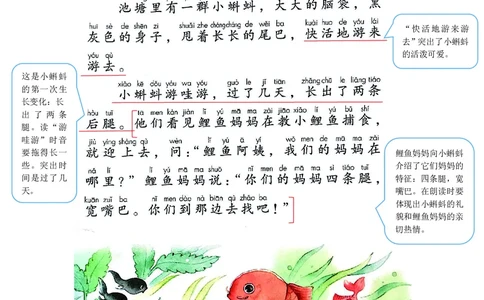 池塘里有一群小蝌蚪，大大的脑袋，黑
huī sè de shēn zi shuǎi zhe cháng cháng de wěi ba kuài huó de yóu lái
灰色的身子，甩着长长的尾巴，快活地游来
yóu qù
游去。
xiǎo kē dǒu yóu wa yóu guò le jǐ tiān zhǎng chū le liǎng tiáo
小蝌蚪游哇游，过了几天，长出了两条
hòu tuǐ tā men kàn jiàn lǐ yú mā ma zài jiāo xiǎo lǐ yú bǔ shí
后腿。他们看见鲤鱼妈妈在教小鲤鱼捕食，
jiù yíng shàng qù wèn lǐ yú ā yí wǒ men de mā ma zài
就迎上去，问：“鲤鱼阿姨，我们的妈妈在
nǎ lǐ lǐ yú mā ma shuō nǐ men de mā ma sì tiáo tuǐ
哪里？”鲤鱼妈妈说：“你们的妈妈四条腿，
kuān zuǐ ba nǐ men dào nà biān qù zhǎo ba
宽嘴巴。你们到那边去找吧！”
这是小蝌蚪
的第一次生
长变化：长
出了两条
腿。读“游
哇游”时音
要拖得长一
些。突出时
间是过了几
天。
“快活地游来游
去”突出了小蝌蚪
的活泼可爱。
鲤鱼妈妈向小蝌蚪
介绍了它们妈妈的
特征：四条腿，宽
嘴巴。在朗读时要
体现出小蝌蚪的礼
貌和鲤鱼妈妈的亲
切热情。